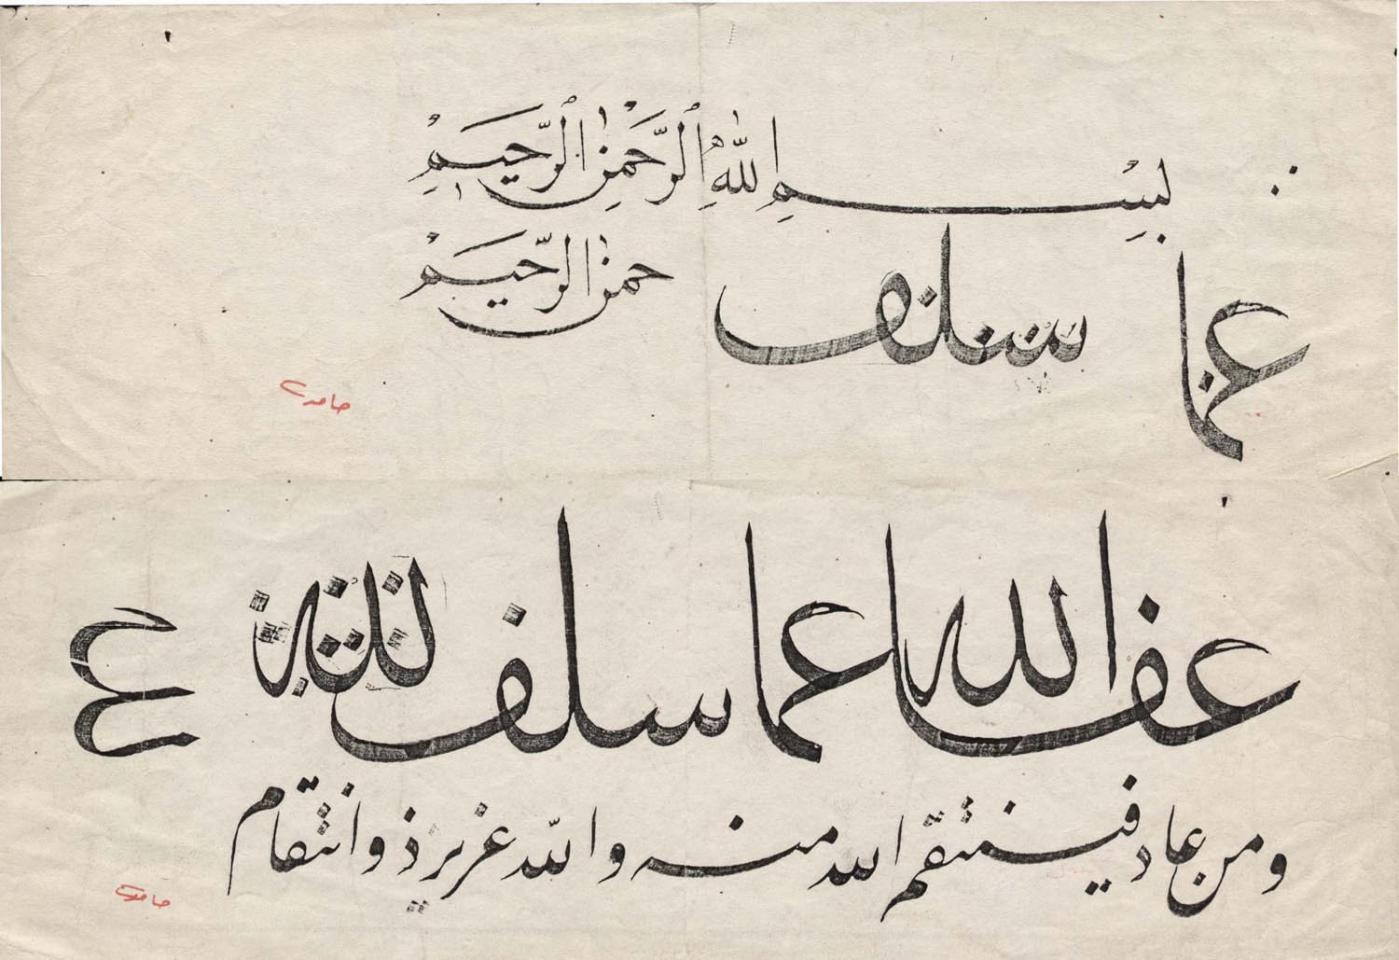 بِسْمِ اللّٰهِ الرَّحْمٰنِ الرَّحِيمِ
عما سلف حمن الرحيم
حامد
عفا الله عما سلف لله ع
ومن عاد فينتقم الله منه والله عزيز ذو انتقام
حامد